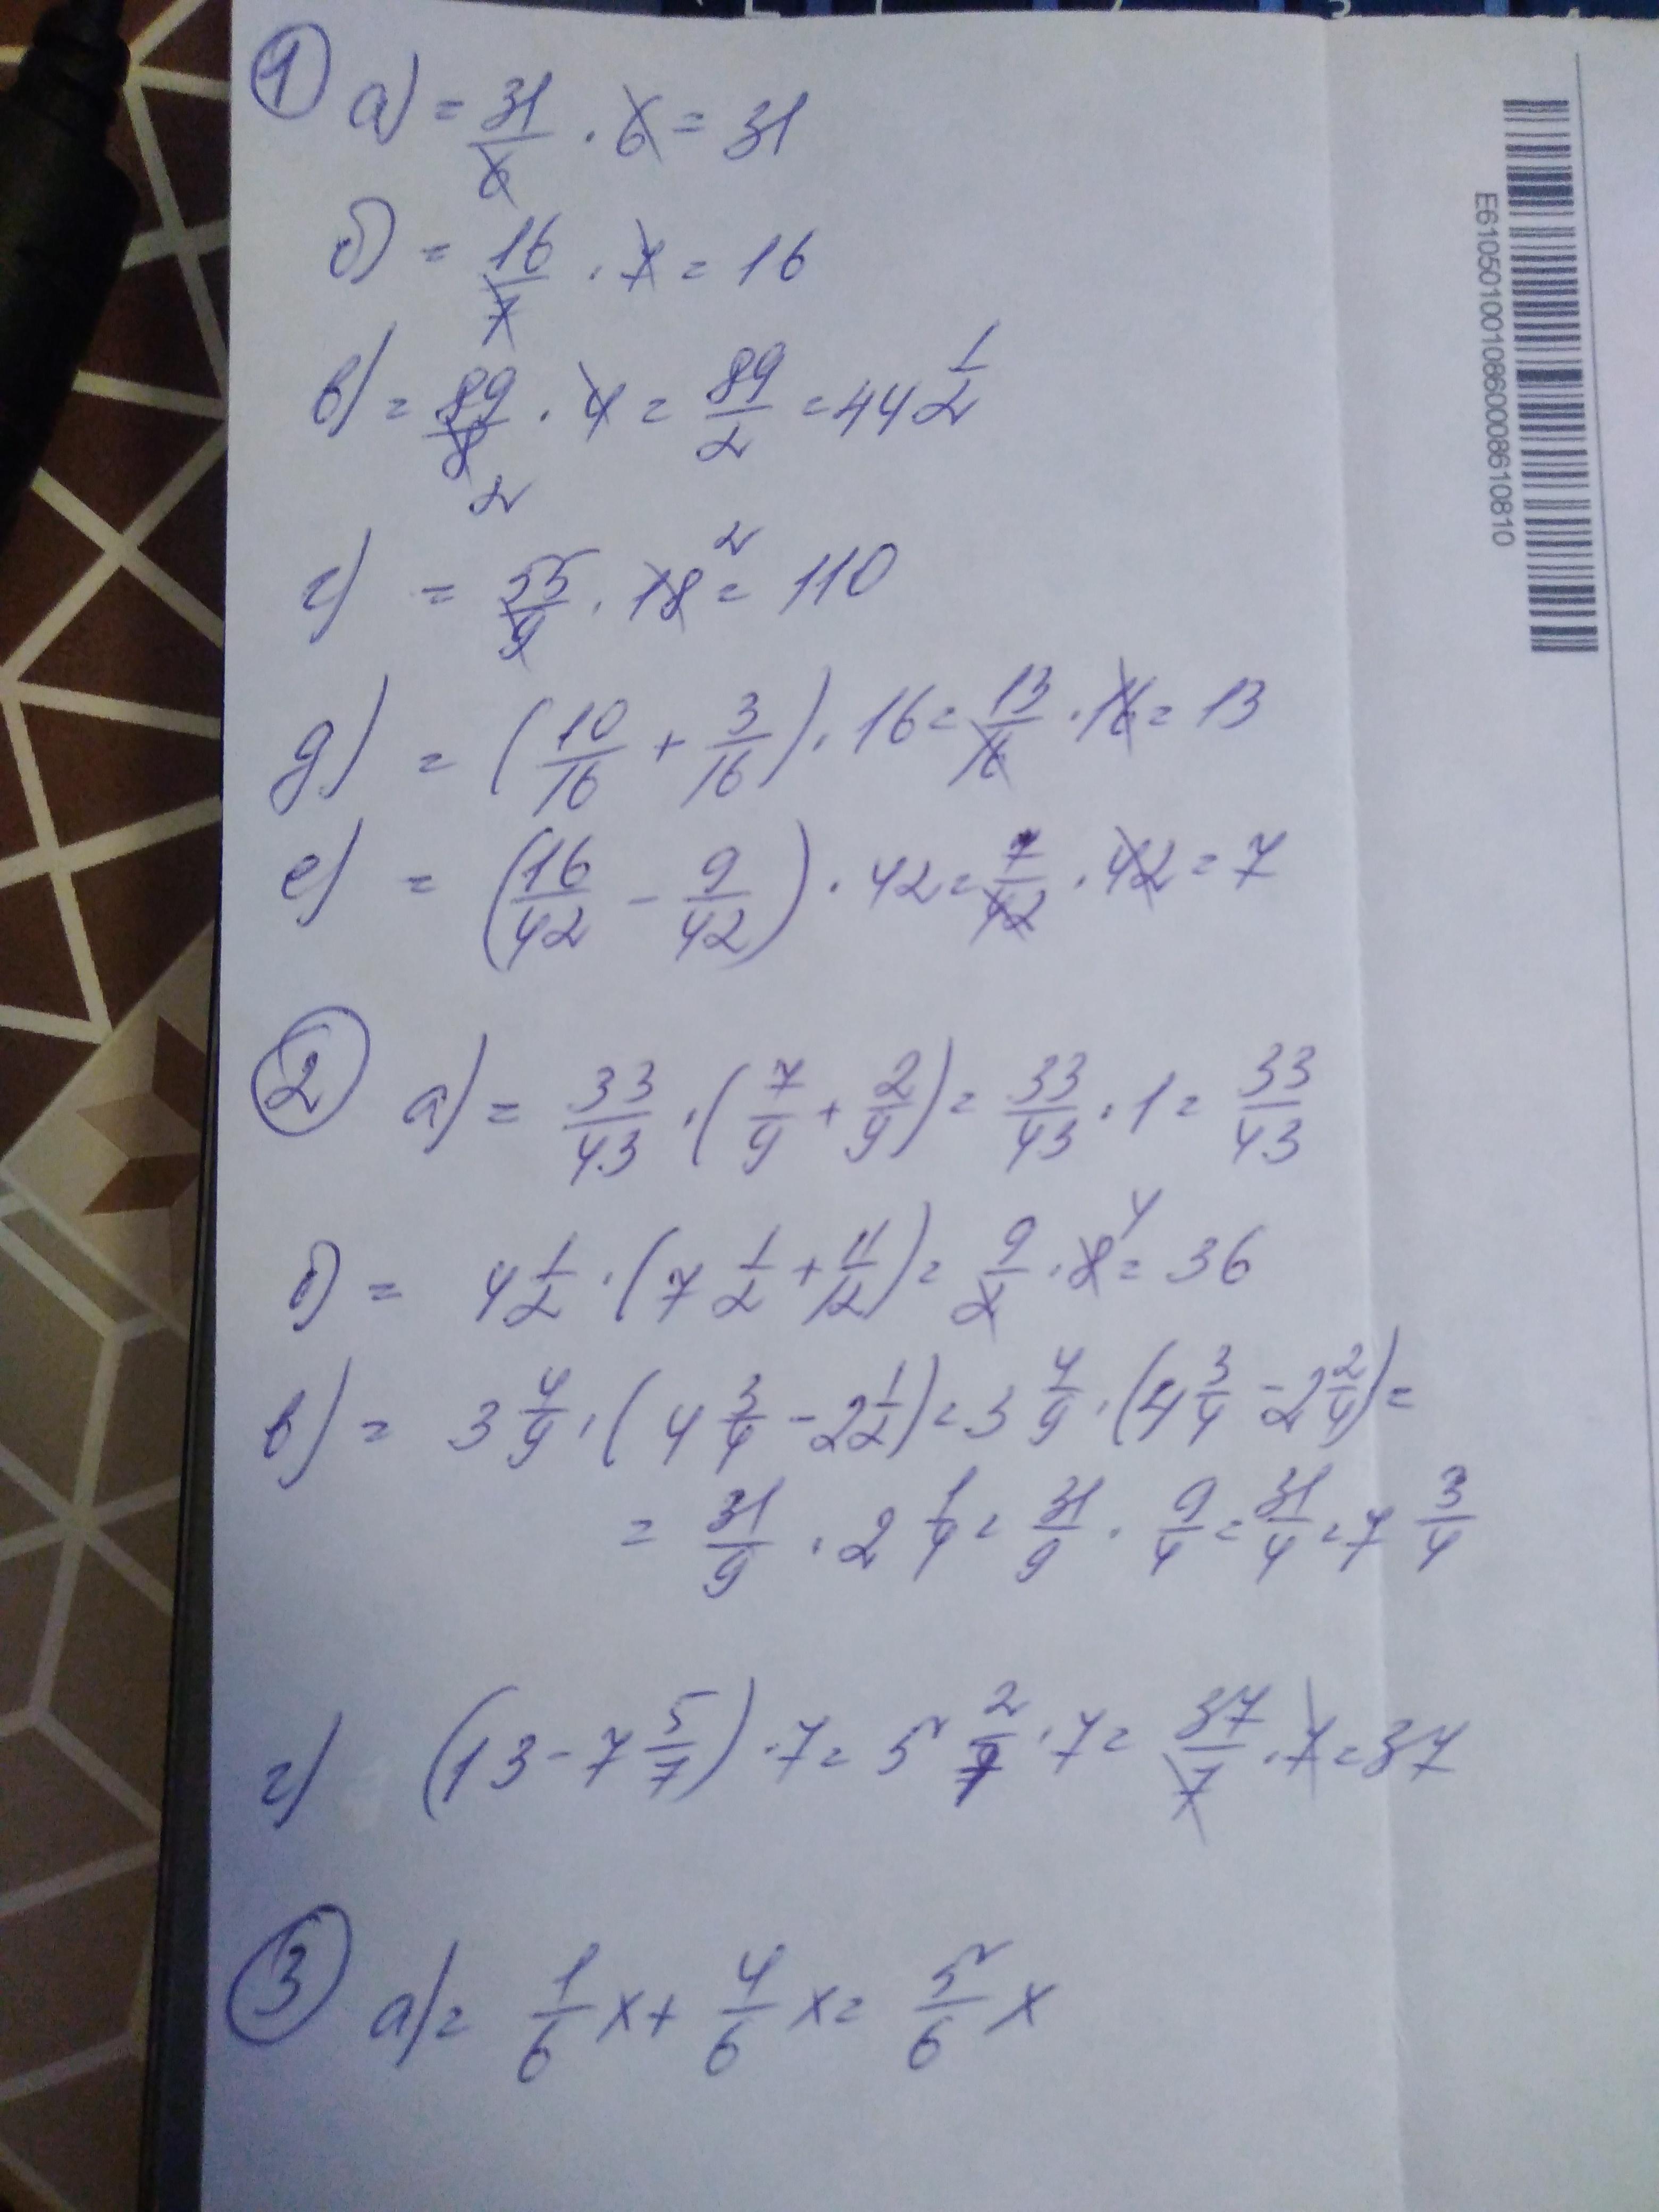 1 а) = 31/6 · 6 = 31
б) = 16/7 · 7 = 16
в) = 89/8 2 · 4 = 89/2 = 44 1/2
г) = 55/9 · 18 2 = 110
д) = (10/16 + 3/16) · 16 = 13/16 · 16 = 13
е) = (16/42 - 9/42) · 42 = 7/42 · 42 = 7
2 а) = 33/43 · (7/9 + 2/9) = 33/43 · 1 = 33/43
б) = 4 1/2 · (7 1/2 + 1/2) = 9/2 · 8 4 = 36
в) = 3 4/9 · (4 3/4 - 2 1/2) = 3 4/9 · (4 3/4 - 2 2/4) =
= 31/9 · 2 1/4 = 31/9 · 9/4 = 31/4 = 7 3/4
г) (13 - 7 5/7) · 7 = 5 2/7 · 7 = 37/7 · 7 = 37
3 а) = 1/6 x + 4/6 x = 5/6 x
E6105010010860008610810